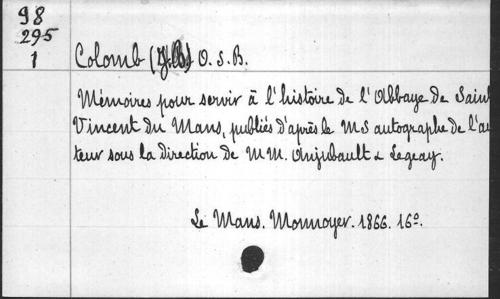 98
295
1
Colomb (J.B.) O. S. B.
Mémoires pour servir à l'histoire de l'Abbaye de Saint
Vincent du Mans, publiés d'après le MS autographe de l'au
teur sous la direction de MM. Anjubault & Legeay.
Le Mans. Monnoyer. 1866. 16º.